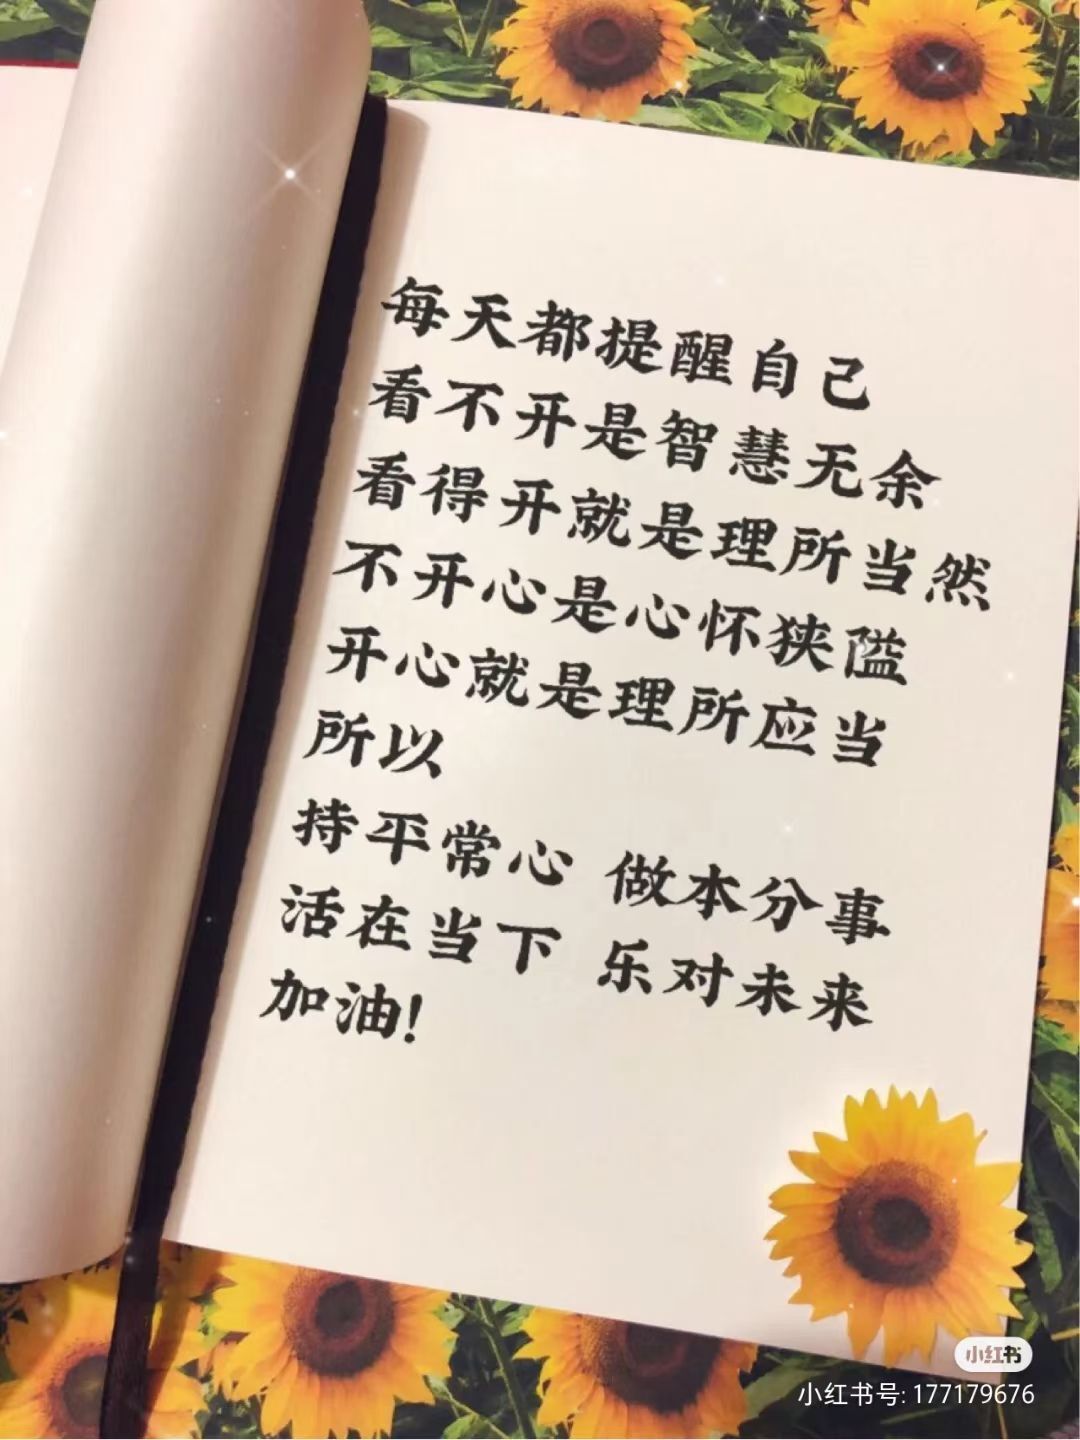 每天都提醒自己
看不开是智慧无余
看得开就是理所当然
不开心是心怀狭隘
开心就是理所应当
所以
持平常心 做本分事
活在当下 乐对未来
加油!
小红书
小红书号: 177179676